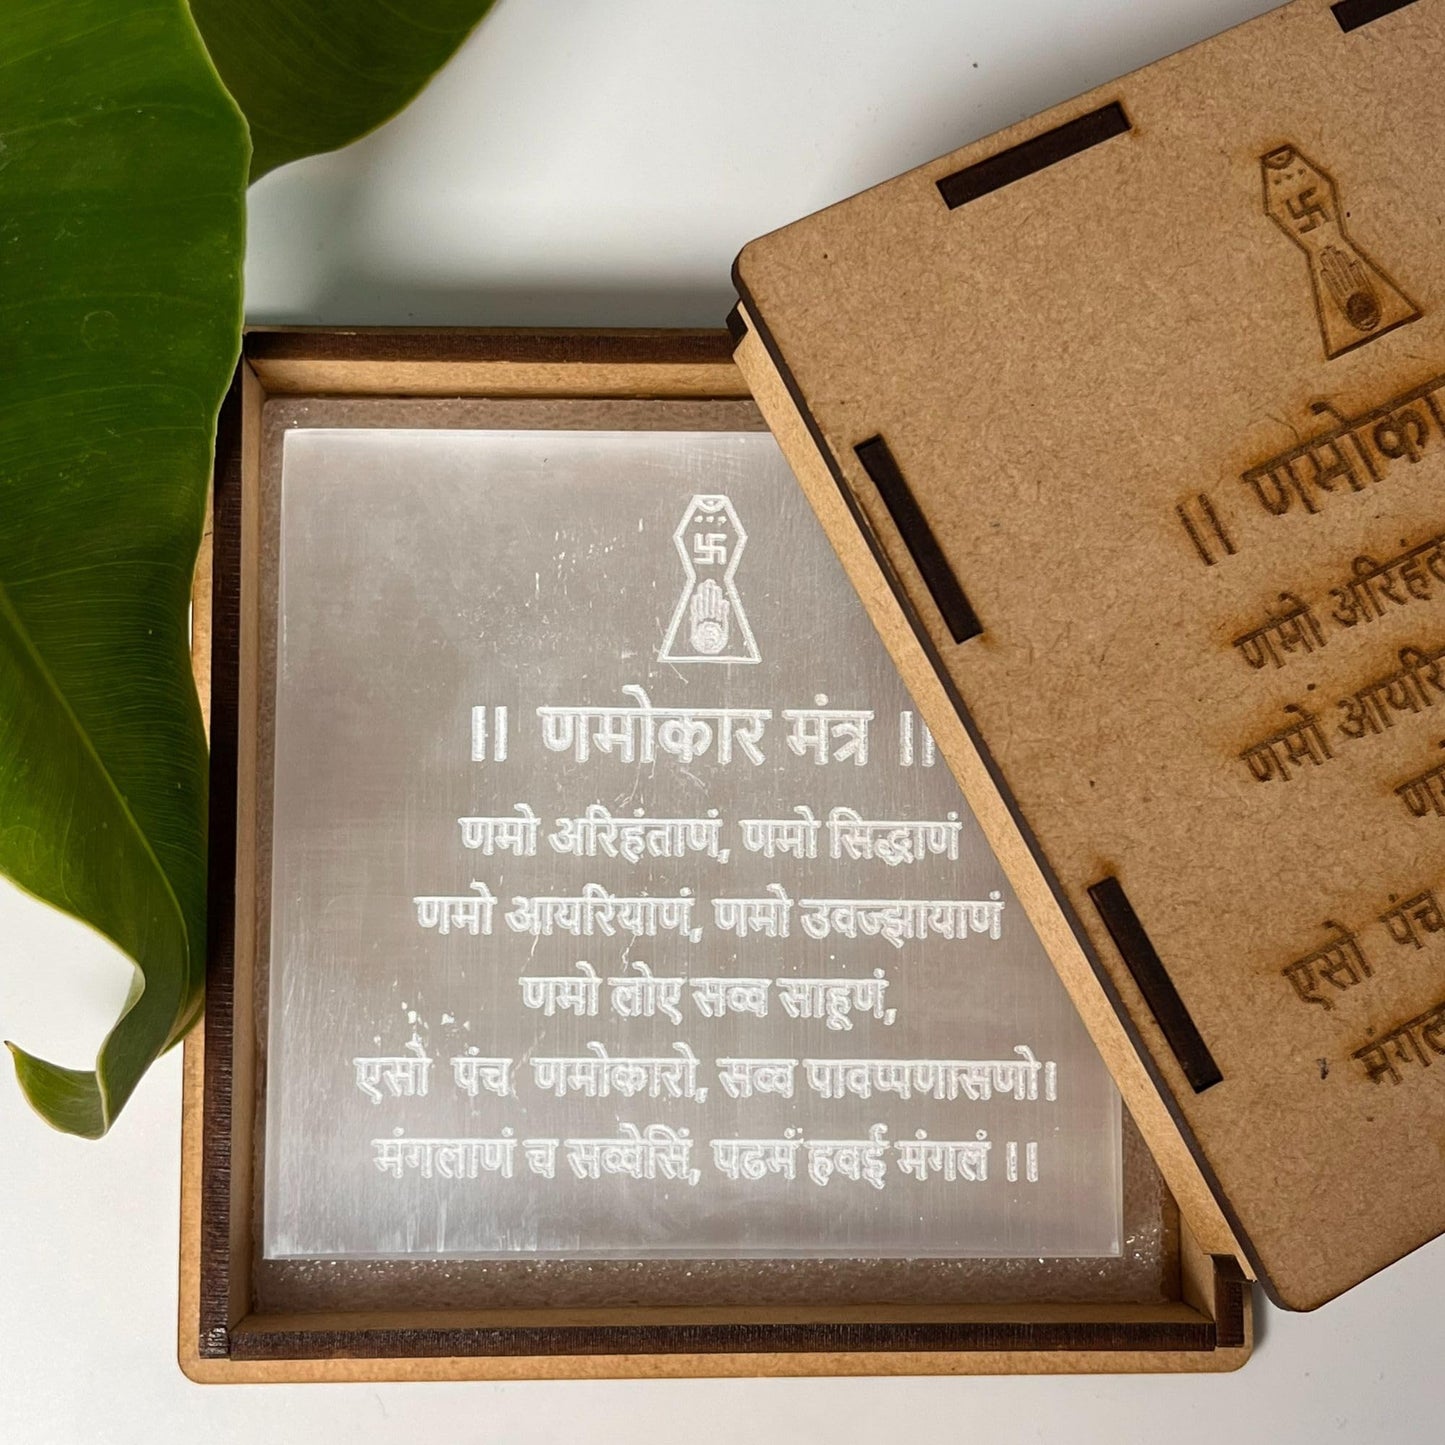 ॥ णमोकार मंत्र ॥
णमो अरिहंताणं, णमो सिद्धाणं
णमो आयरियाणं, णमो उवज्झायाणं
णमो लोए सव्व साहूणं,
एसो पंच णमोकारो, सव्व पावप्पणासणो।
मंगलाणं च सव्वेसिं, पढमं हवई मंगलं ॥
॥ णमोका
णमो अरिहंत
णमो आयरि
णमो
एसो पंच
मंगल